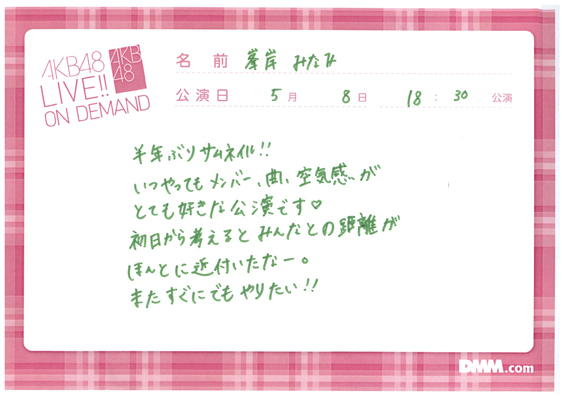 AKB48
LIVE!!
ON DEMAND
AKB
48
名前 峯岸 みなみ
公演日 5月 8日 18:30 公演
半年ぶりサムネイル!!
いつやってもメンバー、曲、空気感が
とても好きな公演です♡
初日から考えるとみんなとの距離が
ほんとに近付いたなー。
またすぐにでもやりたい!!
DMM.com